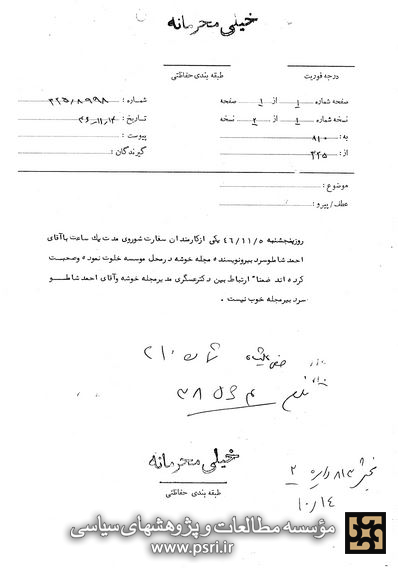 خیلی محرمانه
درجه فوریت
طبقه بندی حفاظتی
صفحه شماره ۱ از ۱ صفحه
شماره : ۳۲۵/۸۹۹۸
نسخه شماره ۱ از ۲ نسخه
تاریخ : ۴۶-۱۱-۱۴
به : ۸۱۰
پیوست :
از : ۳۲۵
گیرندگان :
موضوع :
عطف/پیرو :
روز پنجشنبه ۴۶/۱۱/۵ یکی از کارمندان سفارت شوروی مدت یك ساعت با آقای
احمد شاملو سردبیر و نویسنده مجله خوشه در محل موسسه خلوت نموده و صحبت
کرده اند ضمنا" ارتباط بین دکتر عسگری مدیر مجله خوشه و آقای احمد شاملو
سردبیر مجله خوب نیست .
خیلی محرمانه
طبقه بندی حفاظتی
بخش ۸۱۳ دایره ۲
۱۰/۱۴
مؤسسه مطالعات و پژوهشهای سیاسی
www.psri.ir